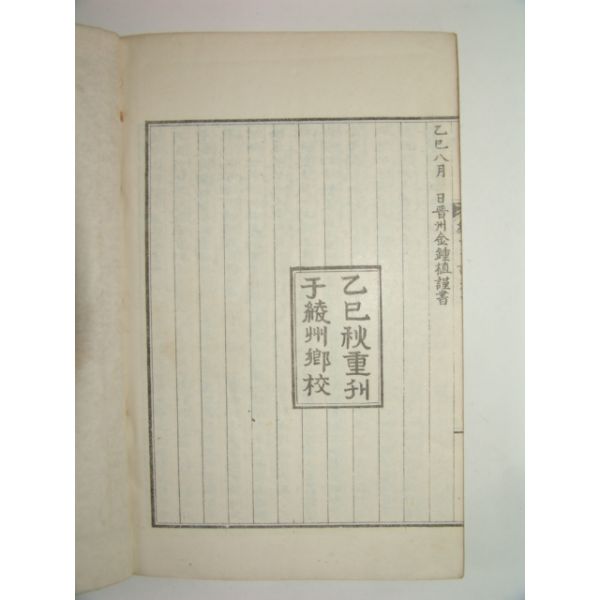 乙巳八月 日晋州金鍾植謹書
乙巳秋重刊
于綾州鄉校